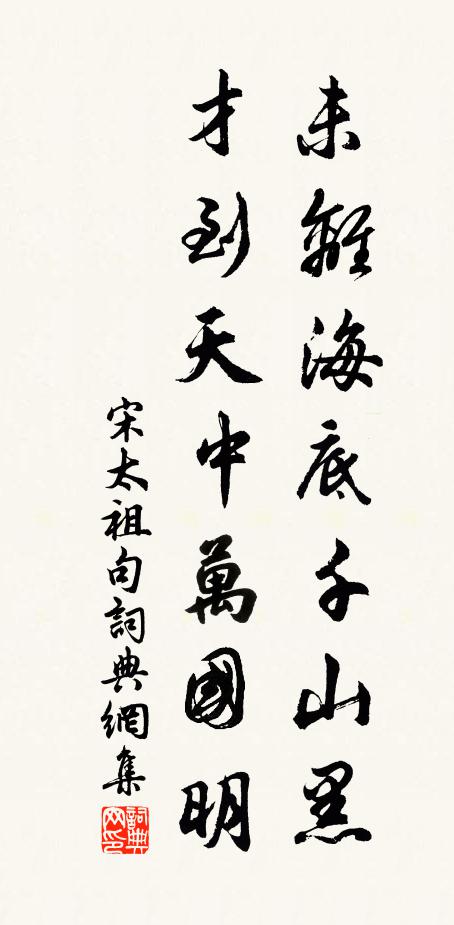 未離海底千山黑
才到天中萬國明
宋太祖句詞典網集
詞典網印